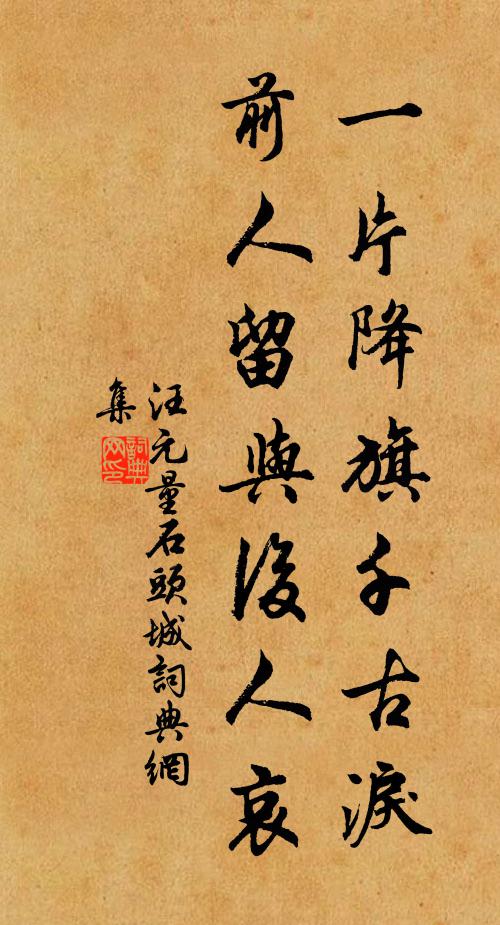 一片降旗千古淚
前人留與後人哀
汪元量石頭城詞典網
集
詞典網印